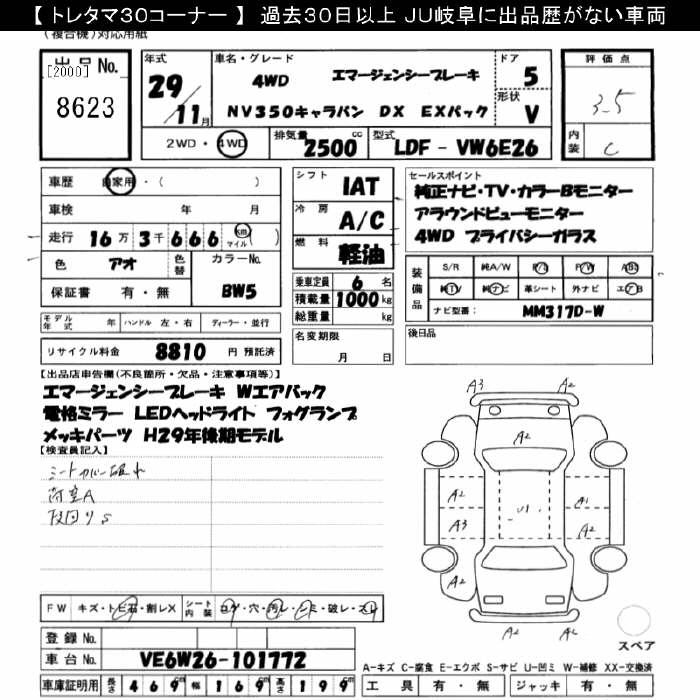 【トレタマ30コーナー】 過去30日以上 JU岐阜に出品歴がない車両
(複合機)対応用紙
出品No.
[2000]
8623
年式
29
11月
車名・グレード
4WD エマージェンシーブレーキ
NV350キャラバン DX EXパック
ドア
5
形状
V
2WD・4WD
排気量
2500cc
型式
LDF - VW6E26
評価点
3.5
内装
C
車歴 自家用・( )
車検 年 月
走行 16万3千666 km マイル( )
色 アオ 色替 カラーNo. BW5
保証書 有・無
モデル年式 年 ハンドル 左・右 ディーラー・並行
リサイクル料金 8810 円 預託済
シフト IAT
冷房 A/C
燃料 軽油
乗車定員 6名
積載量 1000kg
総重量 kg
名変期限
月 日
セールスポイント
純正ナビ・TV・カラーBモニター
アラウンドビューモニター
4WD プライバシーガラス
装備品
S/R 純A/W P/S P/W ABS
純TV 純ナビ 革シート 外ナビ エアB
ナビ型番: MM317D-W
後日品
【出品店申告欄(不良箇所・欠品・注意事項等)】
エマージェンシーブレーキ Wエアバック
電格ミラー LEDヘッドライト フォグランプ
メッキパーツ H29年後期モデル
【検査員記入】
シートカバー破れ
荷室A
下回りS
FW キズ・トビ石・割レX シート内装 コゲ・穴・汚レ・シミ・破レ・スレ
登録No.
車台No. VE6W26-101772
車庫証明用 長さ 469 幅 169 高さ 199
A3 A2
A2
A2 A1
U1
A3 A2
A2
A2 A2
スペア
A-キズ C-腐食 E-エクボ S-サビ U-凹ミ W-補修 XX-交換済
工具 有・無 ジャッキ 有・無